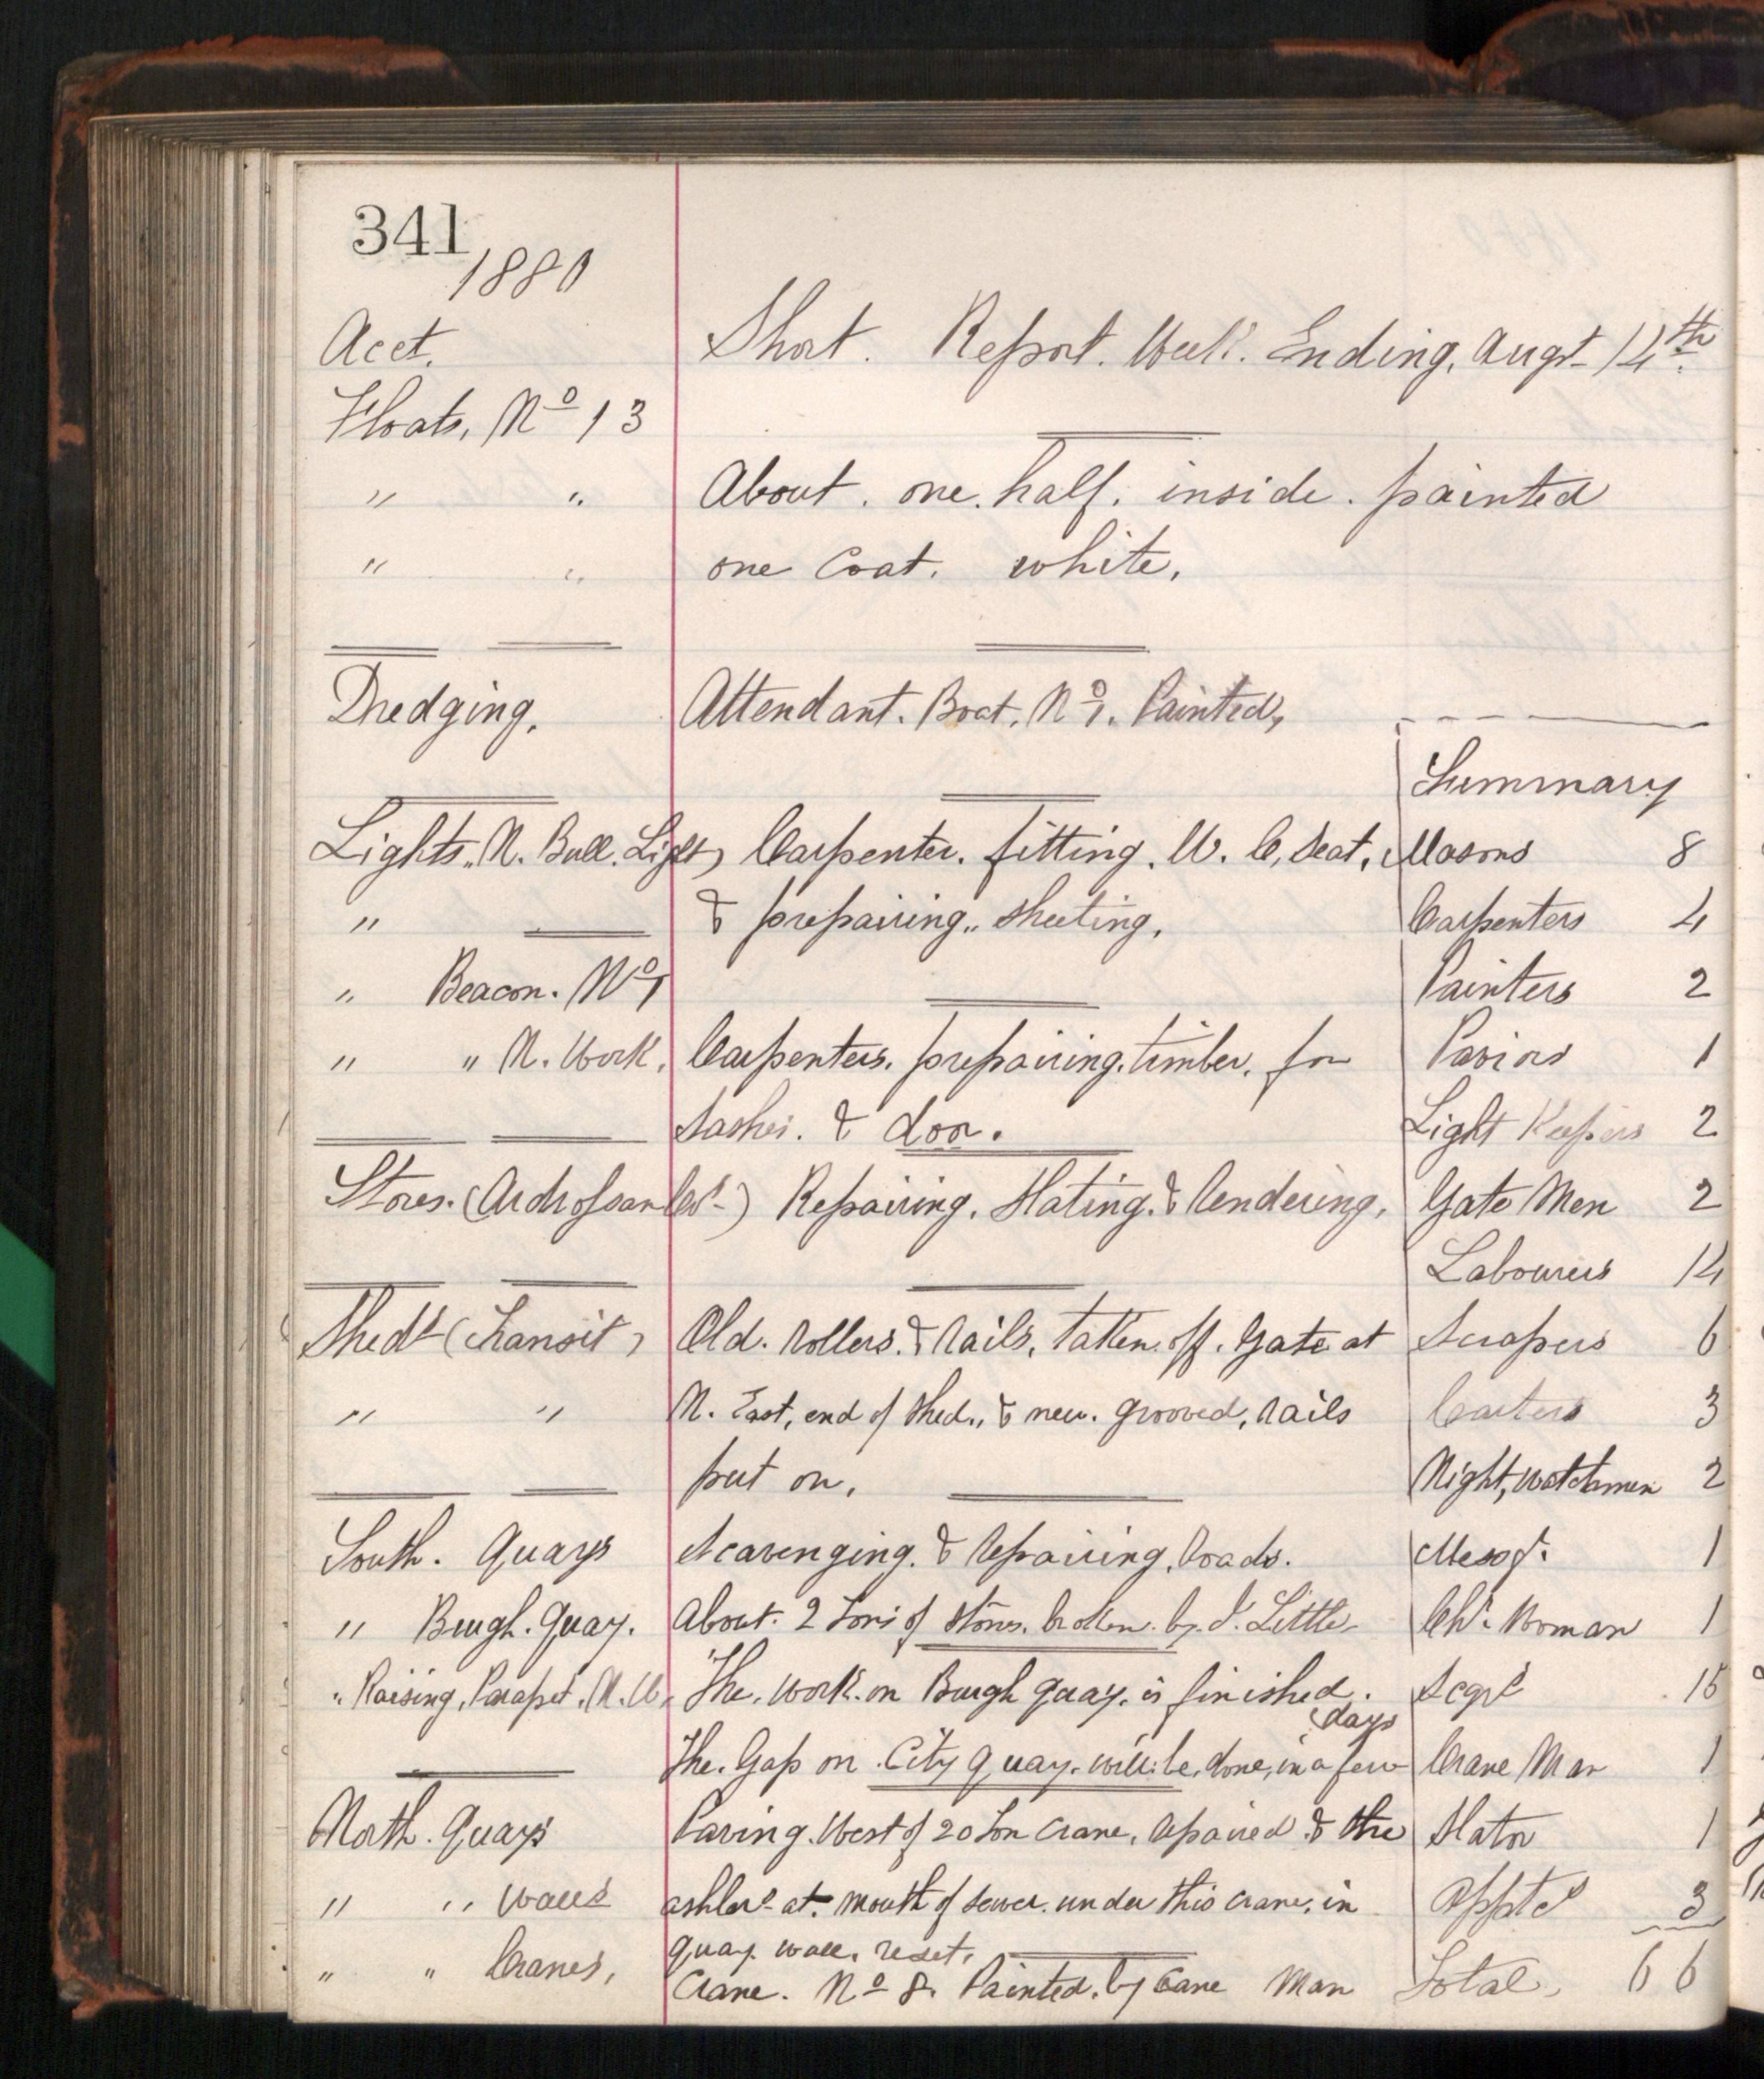 341
1880
Acct. Short. Report. Week. Ending. Augt 14th
Floats, No 13
" " About. one. half. inside. painted
" " one Coat. white.
Dredging. Attendant. Boat. No 1. Painted,
Summary
Lights. N. Bull. Light, Carpenter. fitting. W. C. Seat, Masons 8
" & prepairing. sheeting. Carpenters 4
" Beacon. No 1 Painters 2
" " N. Work. Carpenters. prepairing. timber. for Paviors 1
sashes. & door. Light Keepers 2
Stores. (Ardrossan Co.) Repairing. Slating. & Rendering. Gate Men 2
Labourers 14
Shed (Transit) Old. Rollers. & Rails, taken. off. Gate at Scrapers 6
" " N. East, end of shed., & new. grooved, rails Carters 3
put on. Night, watchmen 2
South. Quays Scavenging. & Repairing. Roads. Messr. 1
" Burgh. Quay. About. 2 Tons of stones. broken. by. J. Little Chr. Woman 1
" Raising, Parapet. N. W. The. work. on Burgh quay. is finished. 15
The. Gap on. City Quay. will. be. done, in a few days Crane Man 1
North. Quays Paving. West of 20 Ton crane. repaired & the Slator 1
" " Walls ashlar at mouth of sewer. under this crane. in Apptcs 3
quay. wall. reset.
" " Cranes, Crane. No 8. Painted. by Cane Man Total. 66